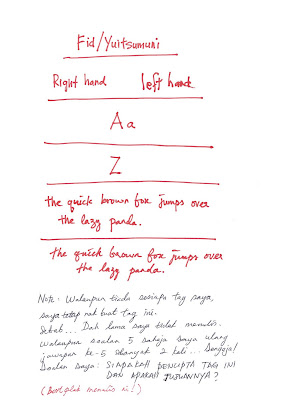 Fid/Yuitsumuni
Right hand left hand
Aa
Z
the quick brown fox jumps over
the lazy panda.
the quick brown fox jumps over
the lazy panda.
Note: Walaupun tiada sesiapa tag saya,
saya tetap nak buat tag ini.
Sebab... Dah lama saya tidak menulis.
Walaupun soalan 5 sahaja saya ulang
jawapan ke-5 sebanyak 2 kali... Sengaja!
Soalan saya: SIAPAKAH PENCIPTA TAG INI
DAN APAKAH TUJUANNYA?
(Best plak menulis ni!)